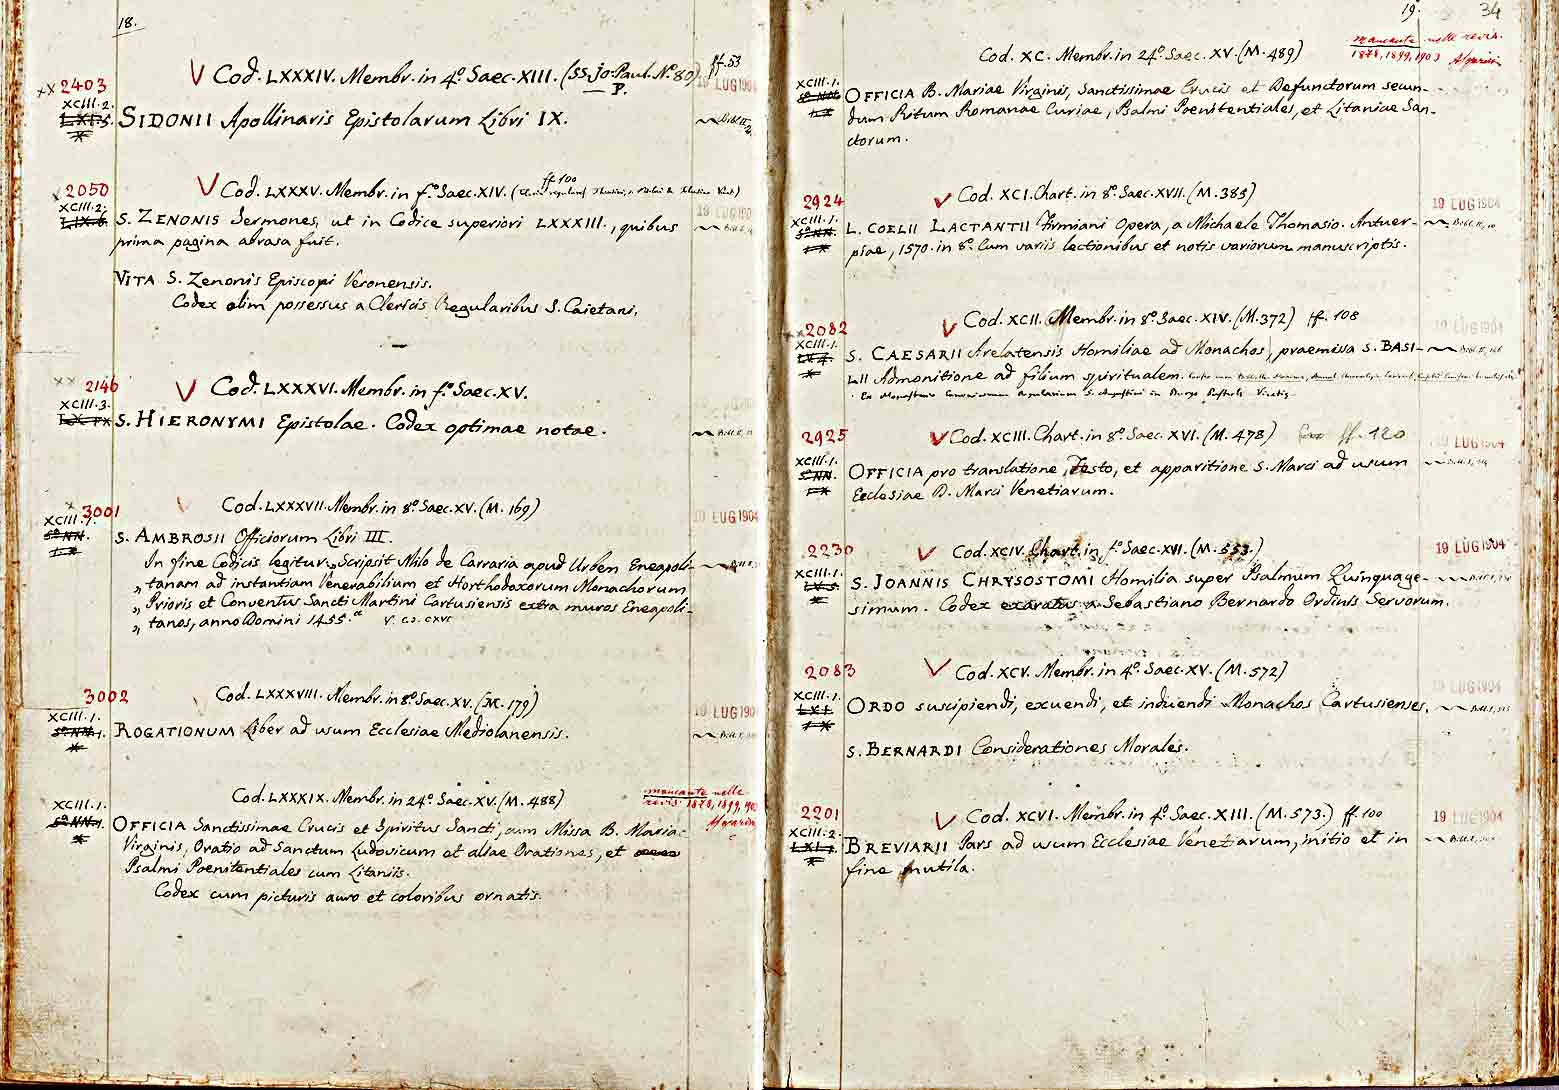 18.
ff. 53
2403 V Cod. LXXXIV. Membr. in 4º. Saec. XIII. (SS. Jo. Paul. Nº. 80)
P.
19 LUG 1904
XCIII. 2.
SIDONII Apollinaris Epistolarum Libri IX.
ff. 100
2050 V Cod. LXXXV. Membr. in fº. Saec. XIV.
XCIII. 2.
19 LUG 190
S. ZENONIS Sermones, ut in Codice superiori LXXXIII., quibus
prima pagina abrasa fuit.
VITA S. Zenonis Episcopi Veronensis.
Codex olim possessus a Clericis Regularibus S. Caietani.
2146 V Cod. LXXXVI. Membr. in fº. Saec. XV.
XCIII. 3.
S. HIERONYMI Epistolae. Codex optimae notae.
3001 Cod. LXXXVII. Membr. in 8º. Saec. XV. (M. 169)
XCIII. 1.
19 LUG 1904
S. AMBROSII Officiorum Libri III.
In fine Codicis legitur „ Scripsit Milo de Carraria apud Urbem Eneapoli-
„ tanam ad instantiam Venerabilium et Horthodoxorum Monachorum
„ Prioris et Conventus Sancti Martini Cartusiensis extra muros Eneapoli-
„ tanos, anno Domini 1455. V. CO. CXVI
3002 Cod. LXXXVIII. Membr. in 8º. Saec. XV. (M. 179)
XCIII. 1.
19 LUG 190
ROGATIONUM Liber ad usum Ecclesiae Mediolanensis.
Cod. LXXXIX. Membr. in 24º. Saec. XV. (M. 488)
mancante nelle
revis. 1878, 1899, 190
XCIII. 1.
OFFICIA Sanctissimae Crucis et Spiritus Sancti, cum Missa B. Mariae
Virginis, Oratio ad Sanctum Ludovicum et aliae Orationes, et
Psalmi Poenitentiales cum Litaniis.
Codex cum picturis auro et coloribus ornatis.
19. 34
Cod. XC. Membr. in 24º. Saec. XV. (M. 489)
mancante nelle revis.
1878, 1899, 1903
XCIII. 1.
OFFICIA B. Mariae Virginis, Sanctissimae Crucis et Defunctorum secun-
dum Ritum Romanae Curiae, Psalmi Poenitentiales, et Litaniae San-
ctorum.
2924 V Cod. XCI. Chart. in 8º. Saec. XVII. (M. 385)
19 LUG 1904
XCIII. 1.
L. COELII LACTANTII Firmiani Opera, a Michaele Thomasio. Antuer-
piae, 1570. in 8º. Cum variis lectionibus et notis variorum manuscriptis.
2082 V Cod. XCII. Membr. in 8º. Saec. XIV. (M. 372) ff. 108
19 LUG 1904
XCIII. 1.
S. CAESARII Arelatensis Homiliae ad Monachos, praemissa S. BASI-
LII Admonitione ad filium spiritualem.
2925 V Cod. XCIII. Chart. in 8º. Saec. XVI. (M. 478) ff. 120
19 LUG 1904
XCIII. 1.
OFFICIA pro translatione, Festo, et apparitione S. Marci ad usum
Ecclesiae D. Marci Venetiarum.
2230 V Cod. XCIV. Chart. in fº. Saec. XVI. (M. 553.)
19 LUG 1904
XCIII. 1.
S. JOANNIS CHRYSOSTOMI Homilia super Psalmum Quinquage-
simum. Codex exaratus a Sebastiano Bernardo Ordinis Servorum.
2083 V Cod. XCV. Membr. in 4º. Saec. XV. (M. 572)
19 LUG 1904
XCIII. 1.
ORDO suscipiendi, exuendi, et induendi Monachos Cartusienses.
S. BERNARDI Considerationes Morales.
2201 V Cod. XCVI. Membr. in 4º. Saec. XIII. (M. 573.) ff. 100
19 LUG 1904
XCIII. 2.
BREVIARII Pars ad usum Ecclesiae Venetiarum, initio et in
fine mutila.